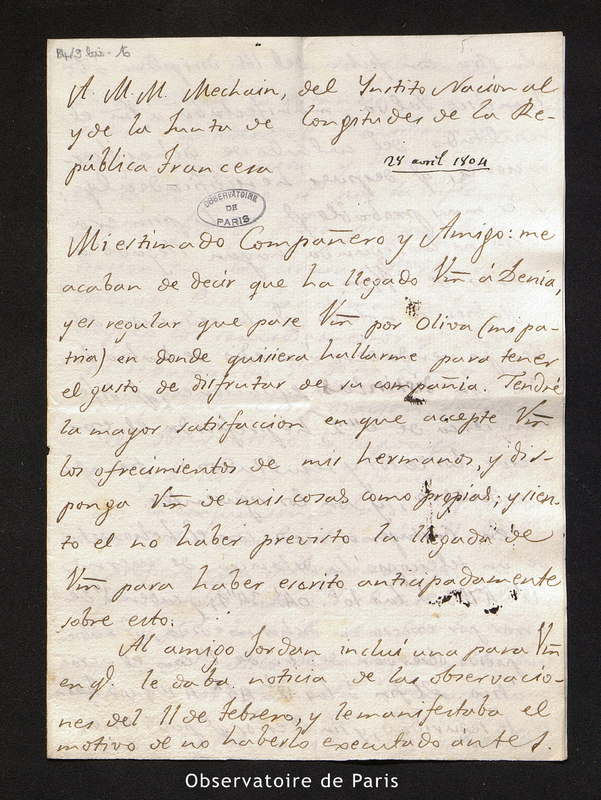 B4/9 bis - 16
A. M. M. Mechain, del Instito Nacional
y de la Junta de Longitudes de la Re-
pública Francesa
28 avril 1804
OBSERVATOIRE
DE
PARIS
Mi estimado Compañero y Amigo: me
acaban de decir que ha llegado Vm á Denia,
y es regular que pase Vm por Oliva (mi pa-
tria) en donde quisiera hallarme para tener
el gusto de disfrutar de su compañia. Tendré
la mayor satisfaccion en que accepte Vm
los ofrecimientos de mis hermanos, y dis-
ponga Vm de mis cosas como propias; y sien-
to el no haber previsto la llegada de
Vm para haber escrito anticipadamente
sobre esto.
Al amigo Jordan inclui una para Vm
en q. le daba noticia de las observacio-
nes del 11 de Febrero, y le manifestaba el
motivo de no haberlo executado ántes.
Observatoire de Paris